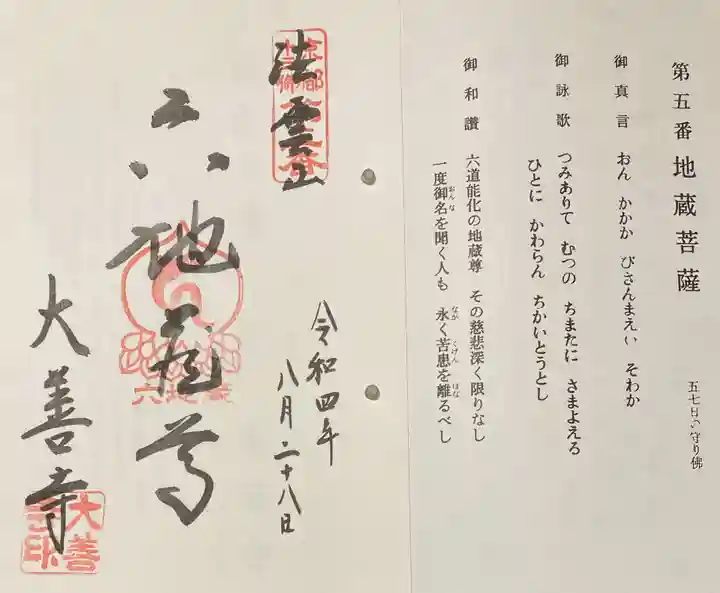 第五番 地蔵菩薩
五七日の守り佛
御真言 おん かかか びさんまえい そわか
御詠歌 つみありて むつの ちまたに さまよえる
ひとに かわらん ちかいとうとし
御和讃 六道能化の地蔵尊 その慈悲深く限りなし
一度御名を聞く人も 永く苦患を離るべし
おんな
なが
くげん
はな
法雲山
京都
六地蔵尊
六地蔵
令和四年
八月二十八日
大善寺
大善
寺印